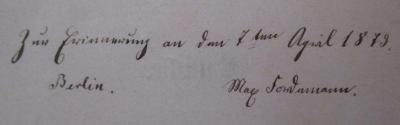 Zur Erinnerung an den 7ten April 1879.
Berlin. Max